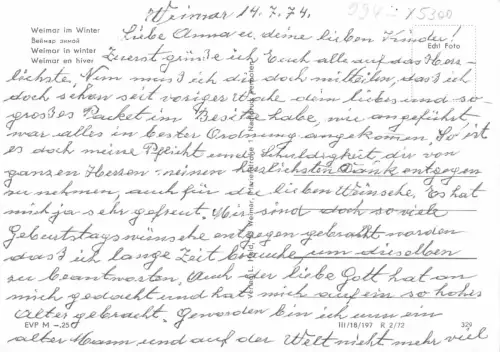 Weimar 14.7.74.
294 X5300
Weimar im Winter
Веймар зимой
Weimar in winter
Weimar en hiver
Edi Foto
Liebe Anna u. deine lieben Kinder!
Zuerst grüße ich Euch alle auf das Herz-
lichste. Nun muß ich dir doch mitteilen, daß ich
doch schon seit voriger Woche dein liebes und so
großes Packet im Besitze habe, wie angeführt
war alles in bester Ordnung angekommen. So ist
es doch meine Pflicht und Schuldigkeit, dir von
ganzen Herzen meinen herzlichsten Dank entgegen
zu nehmen, auch für die lieben Wünsche. Es hat
mich ja sehr gefreut. Mir sind doch so viele
Geburtstagswünsche entgegen gebracht worden
dass ich lange Zeit brauche um dieselben
zu beantworten. Auch der liebe Gott hat an
mich gedacht und hat mich auf ein so hohes
Alter gebracht. Geworden bin ich nun ein
alter Mann und auf der Welt nicht mehr viel
EVP M –.25
III/18/197 R 2/72 329